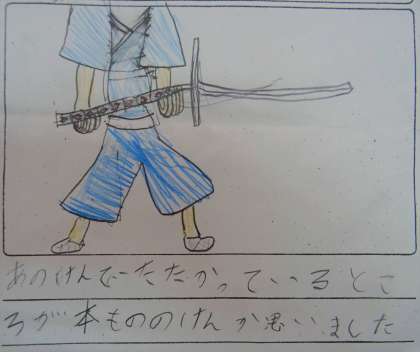 あのけんでーたたかっているとこ
ろが本もののけんか思いました